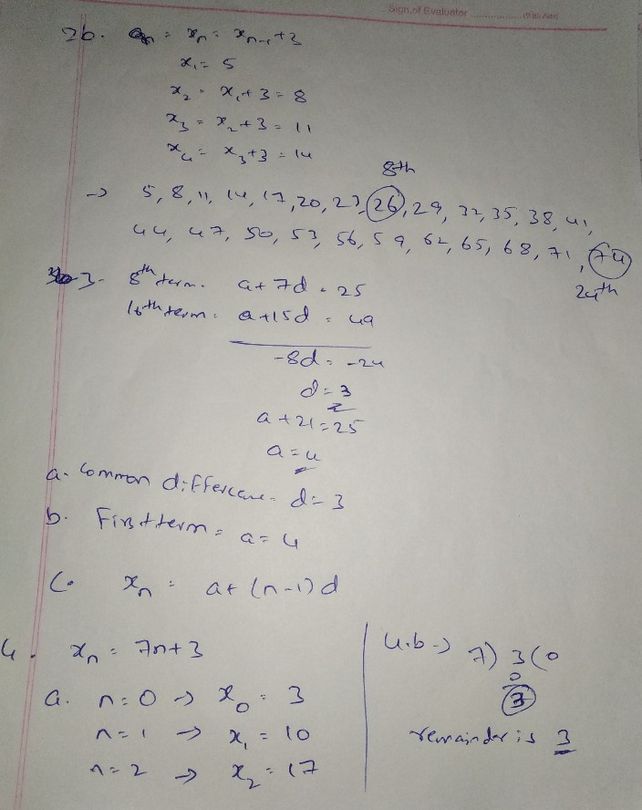 Sign.of Evaluator
2b. an = xn = xn-1+3
x1 = 5
x2 = x1+3 = 8
x3 = x2+3 = 11
x4 = x3+3 = 14
8th
→ 5, 8, 11, 14, 17, 20, 23, 26, 29, 32, 35, 38, 41,
44, 47, 50, 53, 56, 59, 62, 65, 68, 71, 74
24th
3- 8th term. a+7d = 25
16th term = a+15d = 49
-8d = -24
d = 3
a+21 = 25
a = 4
a. Common difference = d = 3
b. First term = a = 4
C. xn = a+(n-1)d
4. xn = 7n+3
a. n=0 → x0 = 3
n=1 → x1 = 10
n=2 → x2 = 17
4.b → 7) 3 (0
0
3
remainder is 3